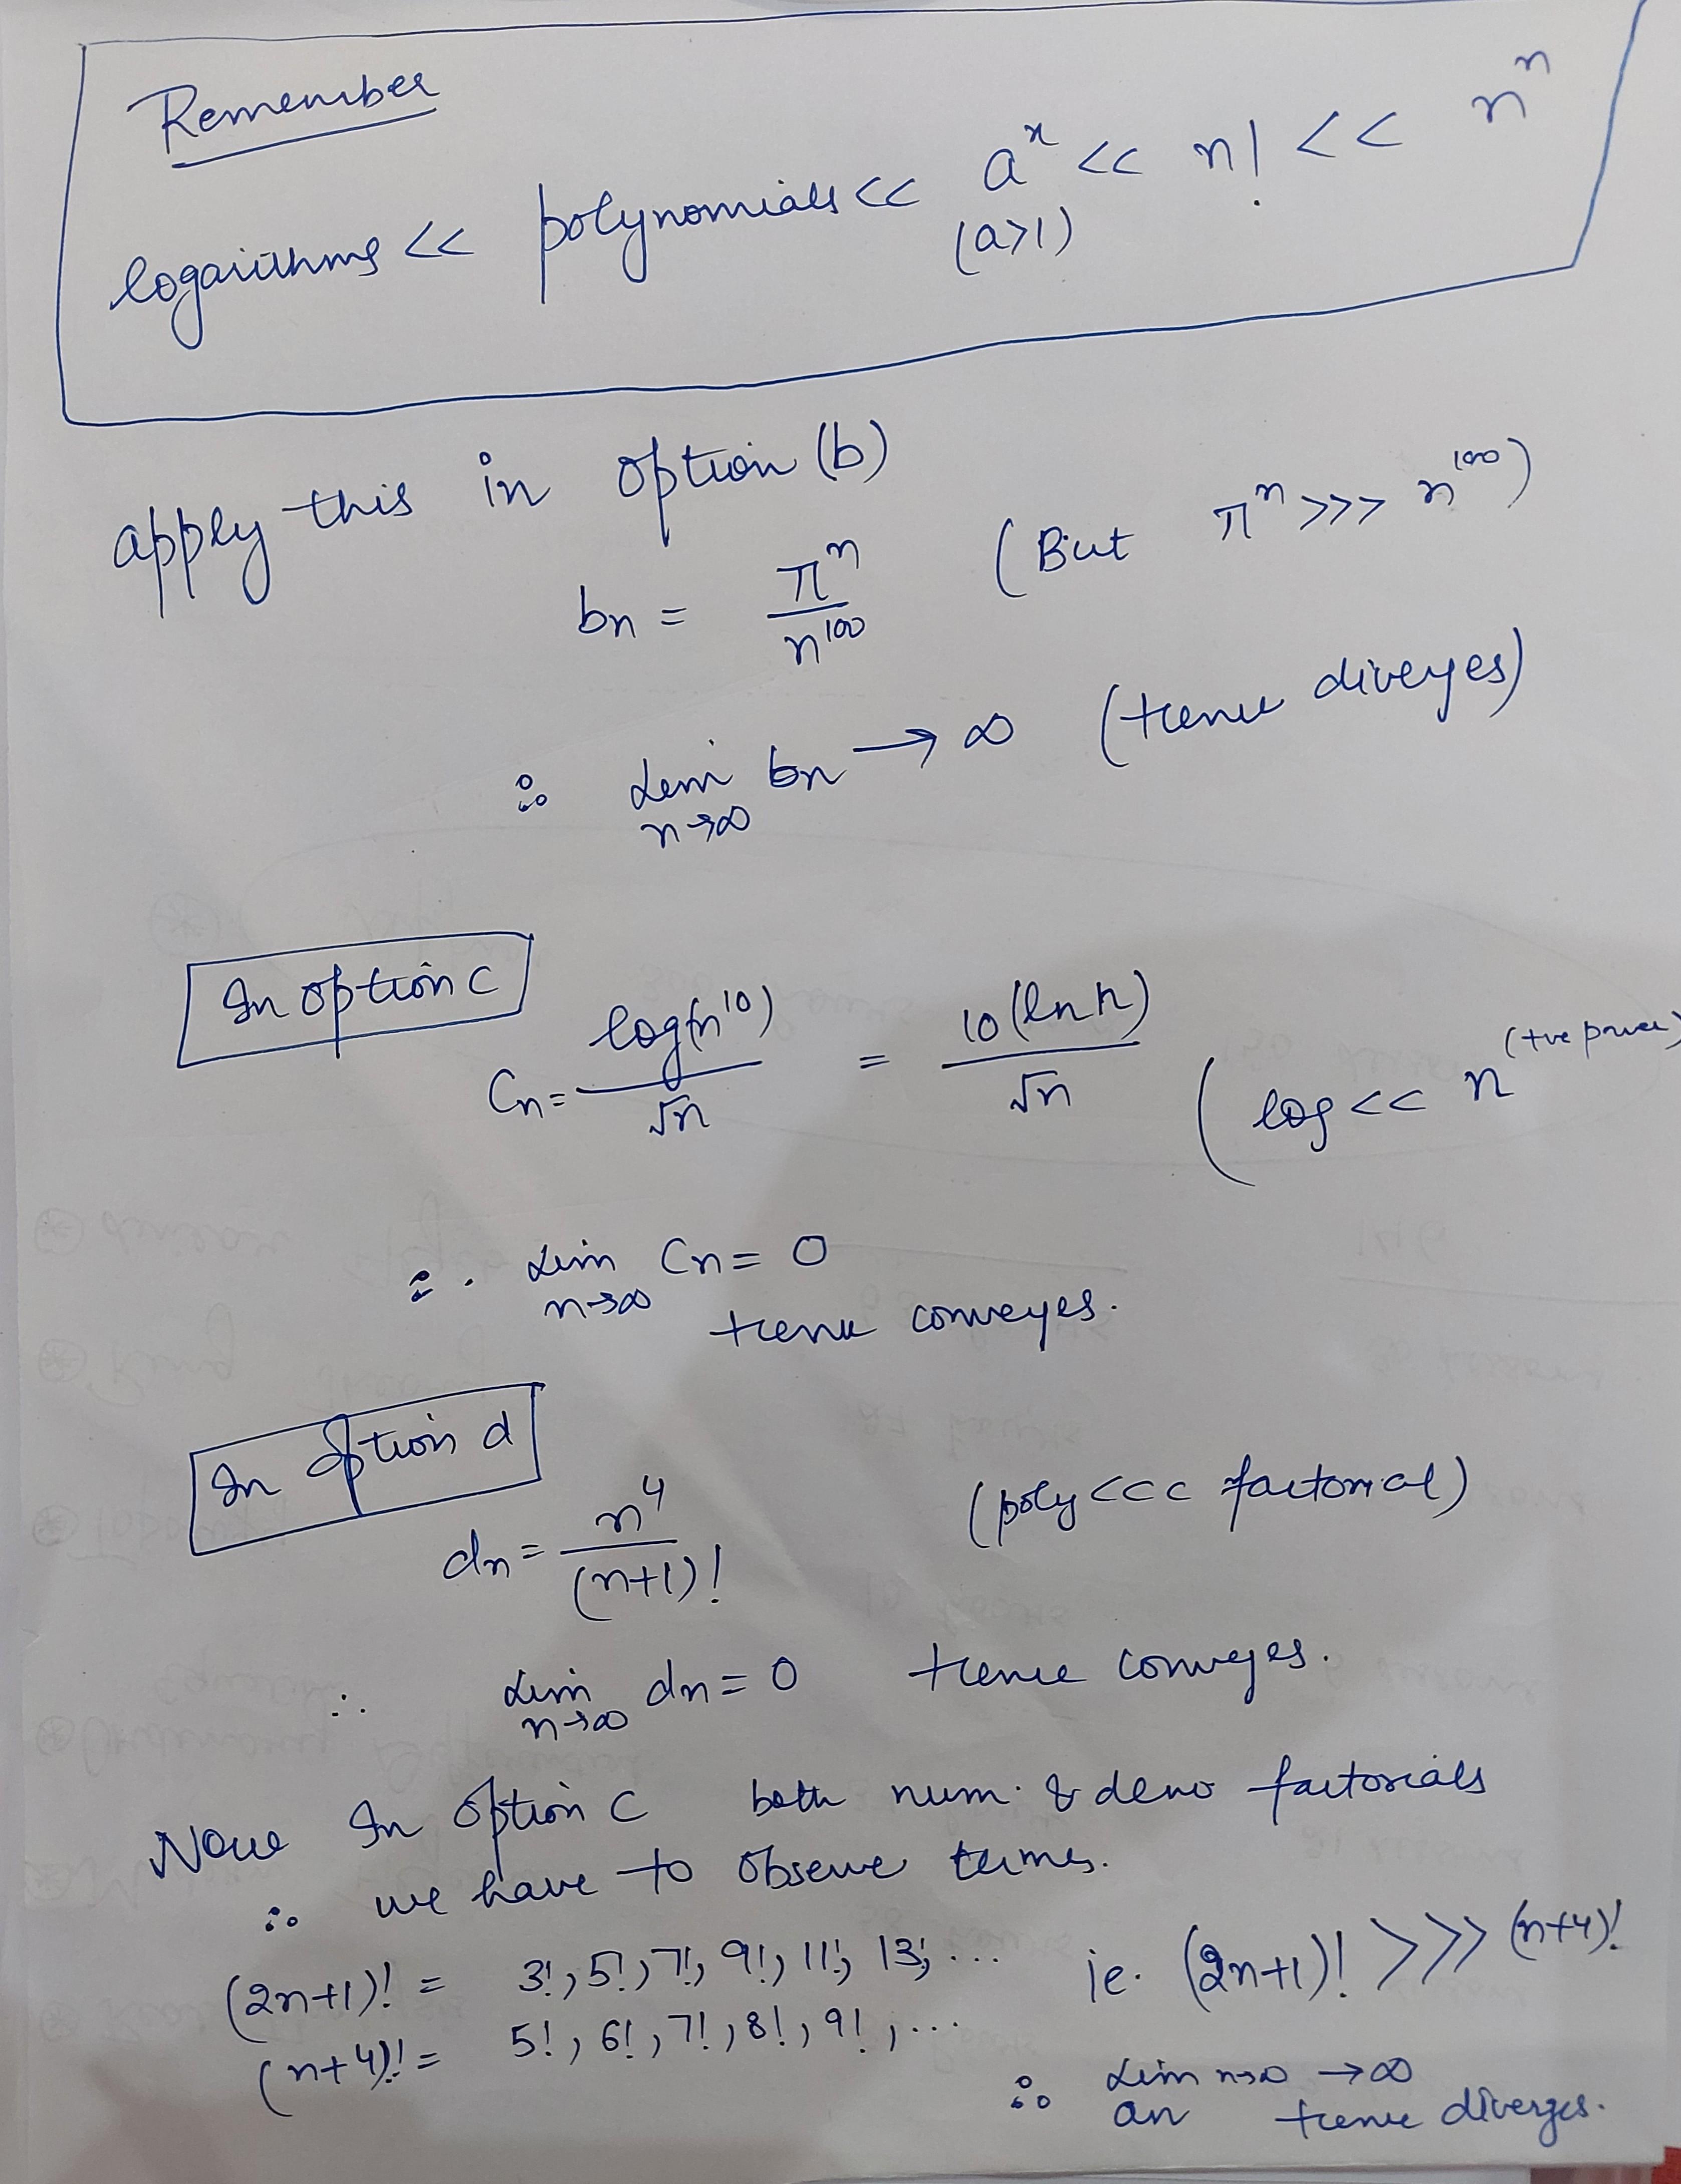 Remember
logarithms << polynomials << aˣ << n! << nⁿ
(a>1)
apply this in option (b)
bn = πⁿ / n¹⁰⁰ (But πⁿ >>> n¹⁰⁰)
∴ Lim n→∞ bn → ∞ (Hence diverges)
In option C
Cn = log(n¹⁰) / √n = 10(ln n) / √n (log << n^(+ve power)
∴ Lim n→∞ Cn = 0
Hence converges.
In option d
dn = n⁴ / (n+1)! (poly <<< factorial)
∴ Lim n→∞ dn = 0 Hence converges.
Now In option C both num. & deno factorials
∴ we have to observe terms.
(2n+1)! = 3!, 5!, 7!, 9!, 11!, 13!, ... ie. (2n+1)! >>> (n+4)!
(n+4)! = 5!, 6!, 7!, 8!, 9!, ...
∴ Lim n→∞ an → ∞
Hence diverges.